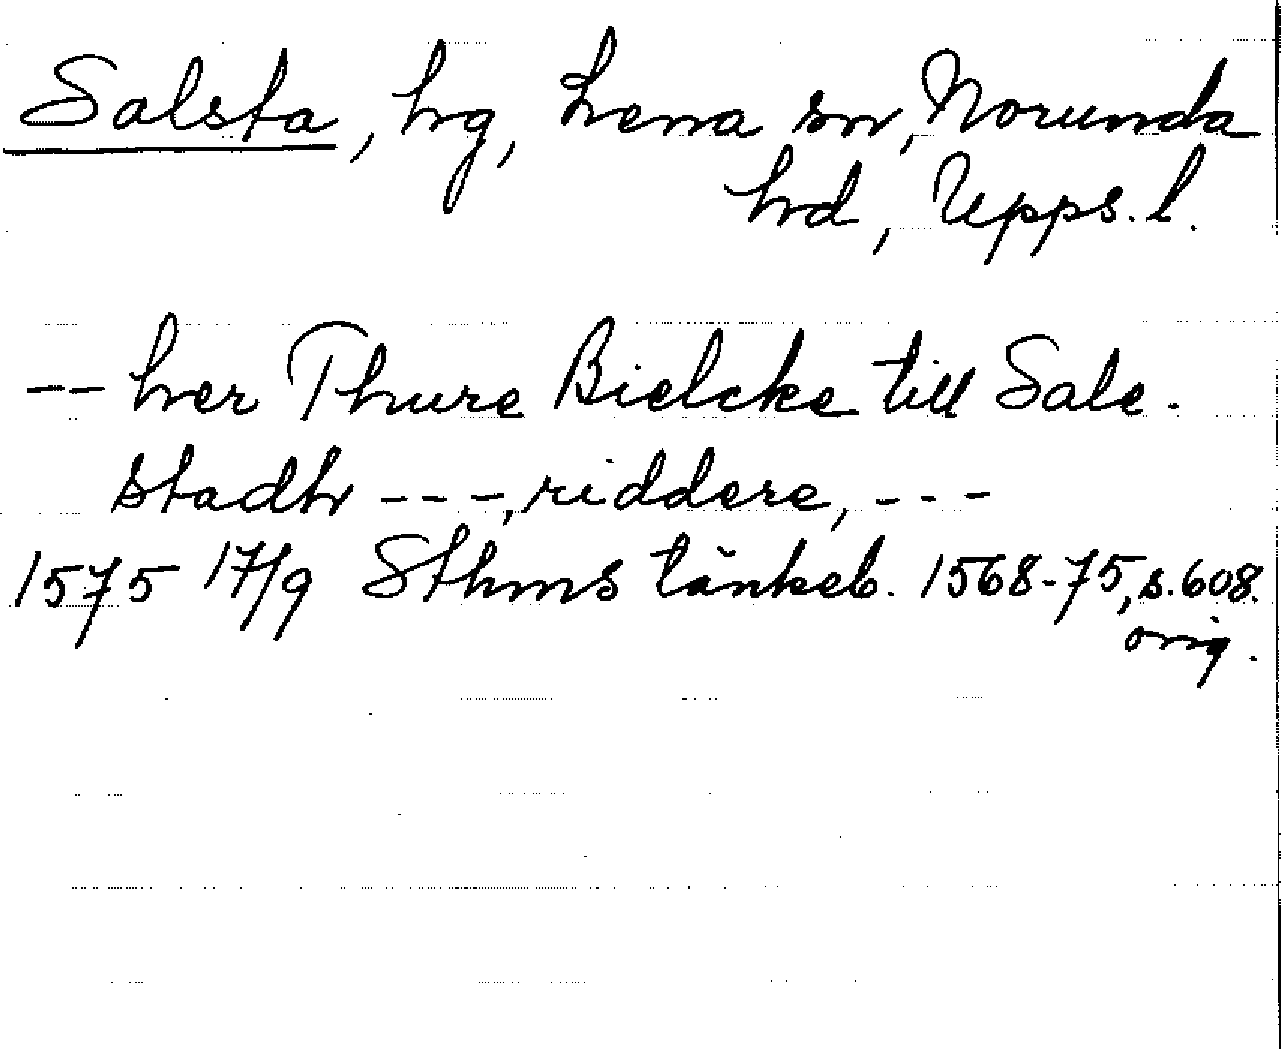 Salsta, hg, Lena sn, Norunda
hd, Upps. l.
-- her Thure Bielcke till Sale-
stadh ---, riddere, ---
1575 17/9 Sthms tänkeb. 1568-75, s. 608.
orig.